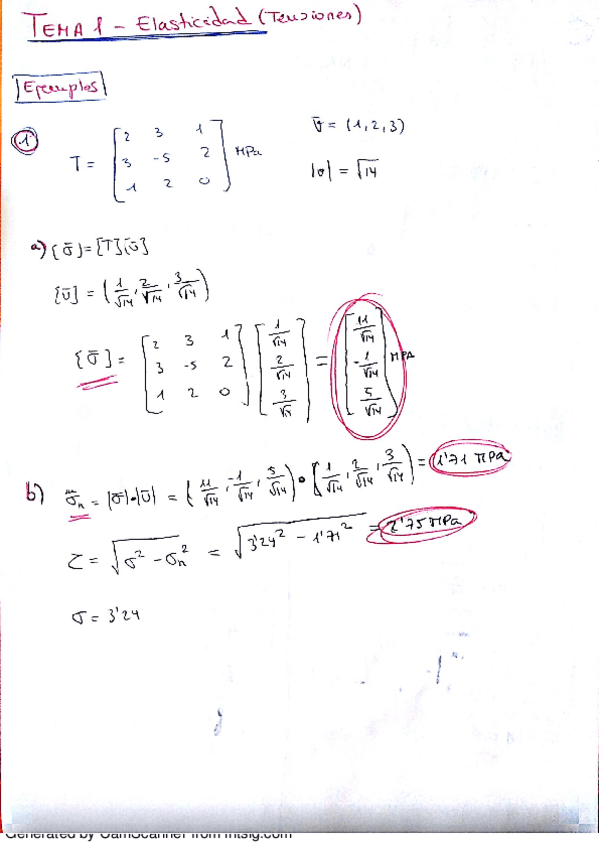 TEMA 1 - Elasticidad (Tensiones)
Ejemplos
1 T = [2 3 1; 3 -5 2; 1 2 0] MPa v̄ = (1, 2, 3)
|v| = √14
a) {σ̄} = [T]{ū}
[ū] = (1/√14, 2/√14, 3/√14)
{σ̄} = [2 3 1; 3 -5 2; 1 2 0] [1/√14; 2/√14; 3/√14] = [11/√14; -1/√14; 5/√14] MPA
b) σ̄n = |σ̄|·|ū| = (11/√14, -1/√14, 5/√14) • (1/√14, 2/√14, 3/√14) = 1'71 MPa
τ = √(σ² - σn²) = √(3'24² - 1'71²) = 2'75 MPa
σ = 3'24
Generated by CamScanner from intsig.com